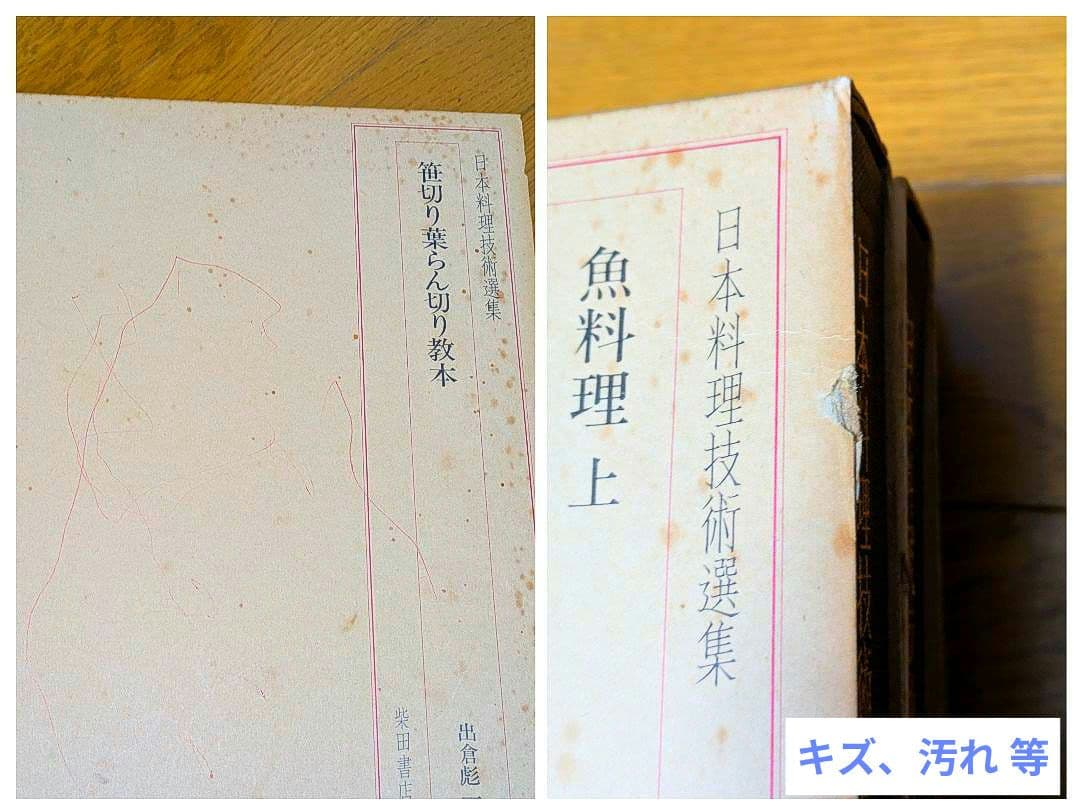 日本料理技術選集
笹切り葉らん切り教本
出倉彪
柴田書店
日本料理技術選集
魚料理 上
キズ、汚れ 等